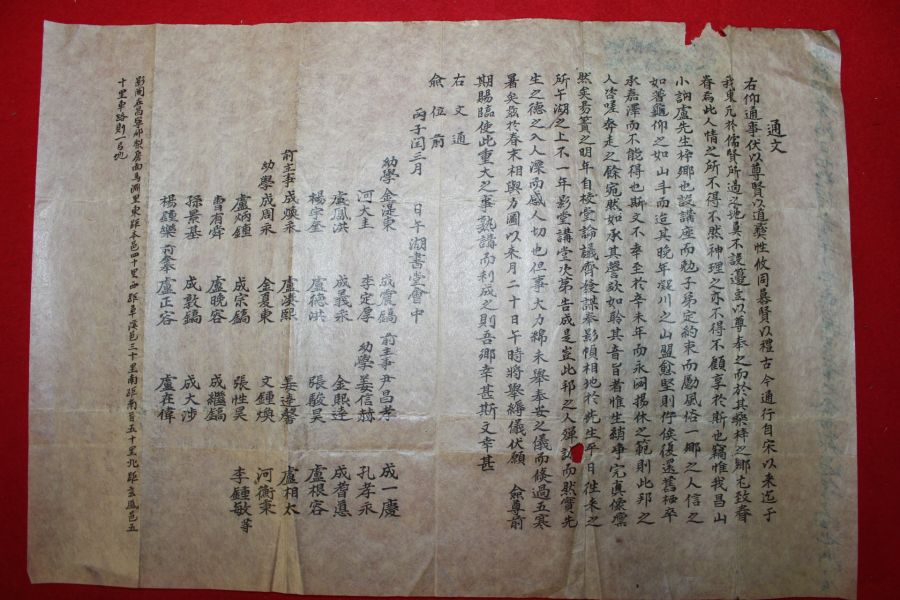 通文
右仰通事伏以尊賢以道義性攸同慕賢以禮古今通行自宋以來迄于
我東凡於儒賢所過之地莫不設邊豆以尊奉之而於其桑梓之鄕尤致眷
眷焉此人情之所不得不然神理之亦不得不顧享於斯也竊惟我昌山
小訥盧先生梓鄕也設講座而勉子弟定約束而勵風俗一鄕之人信之
如蓍龜仰之如山斗而迨其晩年凝川之山盟愈堅則佇俟後還舊栖卒
承嘉澤而不能得也斯文不幸至於辛未年而永閟揚休之範則此邦之
人咨嗟奔走之餘宛然如承其謦欬如聆其音旨者惟生綃爭完眞像凜
然矣易簀之明年自校堂論議齊發謀奉影幀相地於先生平日徃來之
所午湖之上不一年影堂講堂次第告成是豈此邦之人殫誠而然實先
生之德之入人深而感人切也但事大力綿未擧奉安之儀而倏過五寒
暑矣玆於春末相與力圖以來月二十日午時將擧縟儀伏願 僉尊前
期賜臨使此重大之事熟講而利成之則吾鄕幸甚斯文幸甚
右文通
僉位前
丙子閏三月 日午湖書堂會中
幼學金是東 成震鎬 前主事尹昌孝 成一慶
河大圭 李定厚 幼學姜信赫 孔孝永
盧鳳洪 成義永 金熙逵 成耆悳
楊宗奎 盧德洪 張駿昊 盧根容
前主事成煥永 盧漢熙 姜達馨 盧相太
幼學成周永 金夏東 文鍾煥 河衡秉
盧炳鍾 成宗鎬 張性昊 李鍾敏等
曺有舜 盧晩容 成繼鎬
孫景基 成敦鎬 成大涉
楊鍾樂 前參奉盧正容 盧在偉
影閣在昌寧郡梨房面馬淵里東距本邑四十里西距草溪邑三十里南距南旨五十里北距玄風邑五
十里車路則一名地